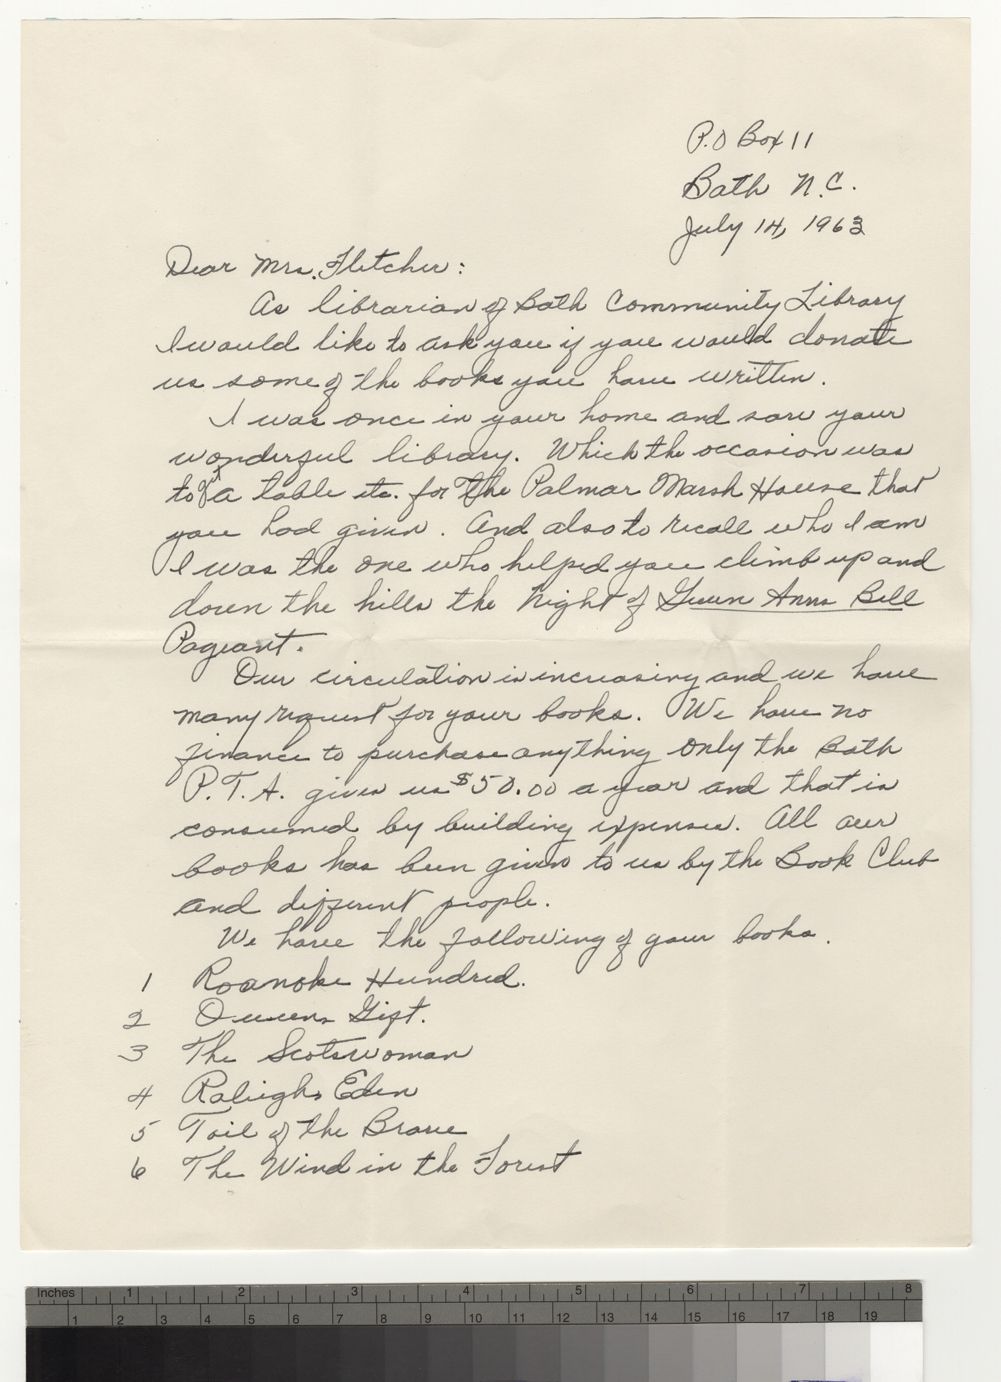 P.O Box 11
Bath N.C.
July 14, 1963
Dear Mrs. Fletcher:
As librarian of Bath Community Library
I would like to ask you if you would donate
us some of the books you have written.
I was once in your home and saw your
wonderful library. Which the occasion was
to a table etc. for the Palmar Marsh House that
you had given. And also to recall who I am
I was the one who helped you climb up and
down the hills the night of Queen Anns Bell
Pageant.
Our circulation is increasing and we have
many request for your books. We have no
finance to purchase anything only the Bath
P.T.A. gives us $50.00 a year and that is
consumed by building expenses. All our
books has been given to us by the Book Club
and different people.
We have the following of your books.
1 Roanoke Hundred.
2 Queens Gift.
3 The Scotswoman
4 Raleighs Eden
5 Toil of the Brave
6 The Wind in the Forest
Inches 1 2 3 4 5 6 7 8
1 2 3 4 5 6 7 8 9 10 11 12 13 14 15 16 17 18 19